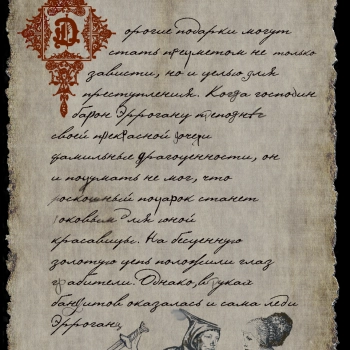 Дорогие подарки могут
стать предметом не только
зависти, но и целью для
преступления. Когда господин
барон Эррогану преподнёс
своей прекрасной дочери
фамильные драгоценности, он
и подумать не мог, что
роскошный подарок станет
роковым для юной
красавицы. На бесценную
золотую цепь положили глаз
грабители. Однако, в руках
бандитов оказалась и сама леди
Эрроганц